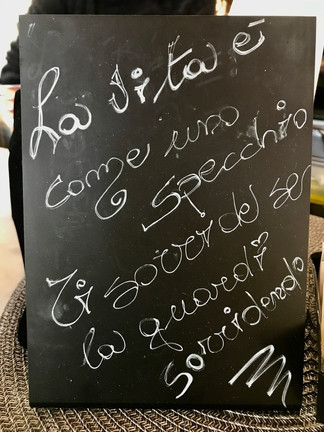 La vita é
come uno
specchio
Ti sorride se
la guardi
sorridendo
M